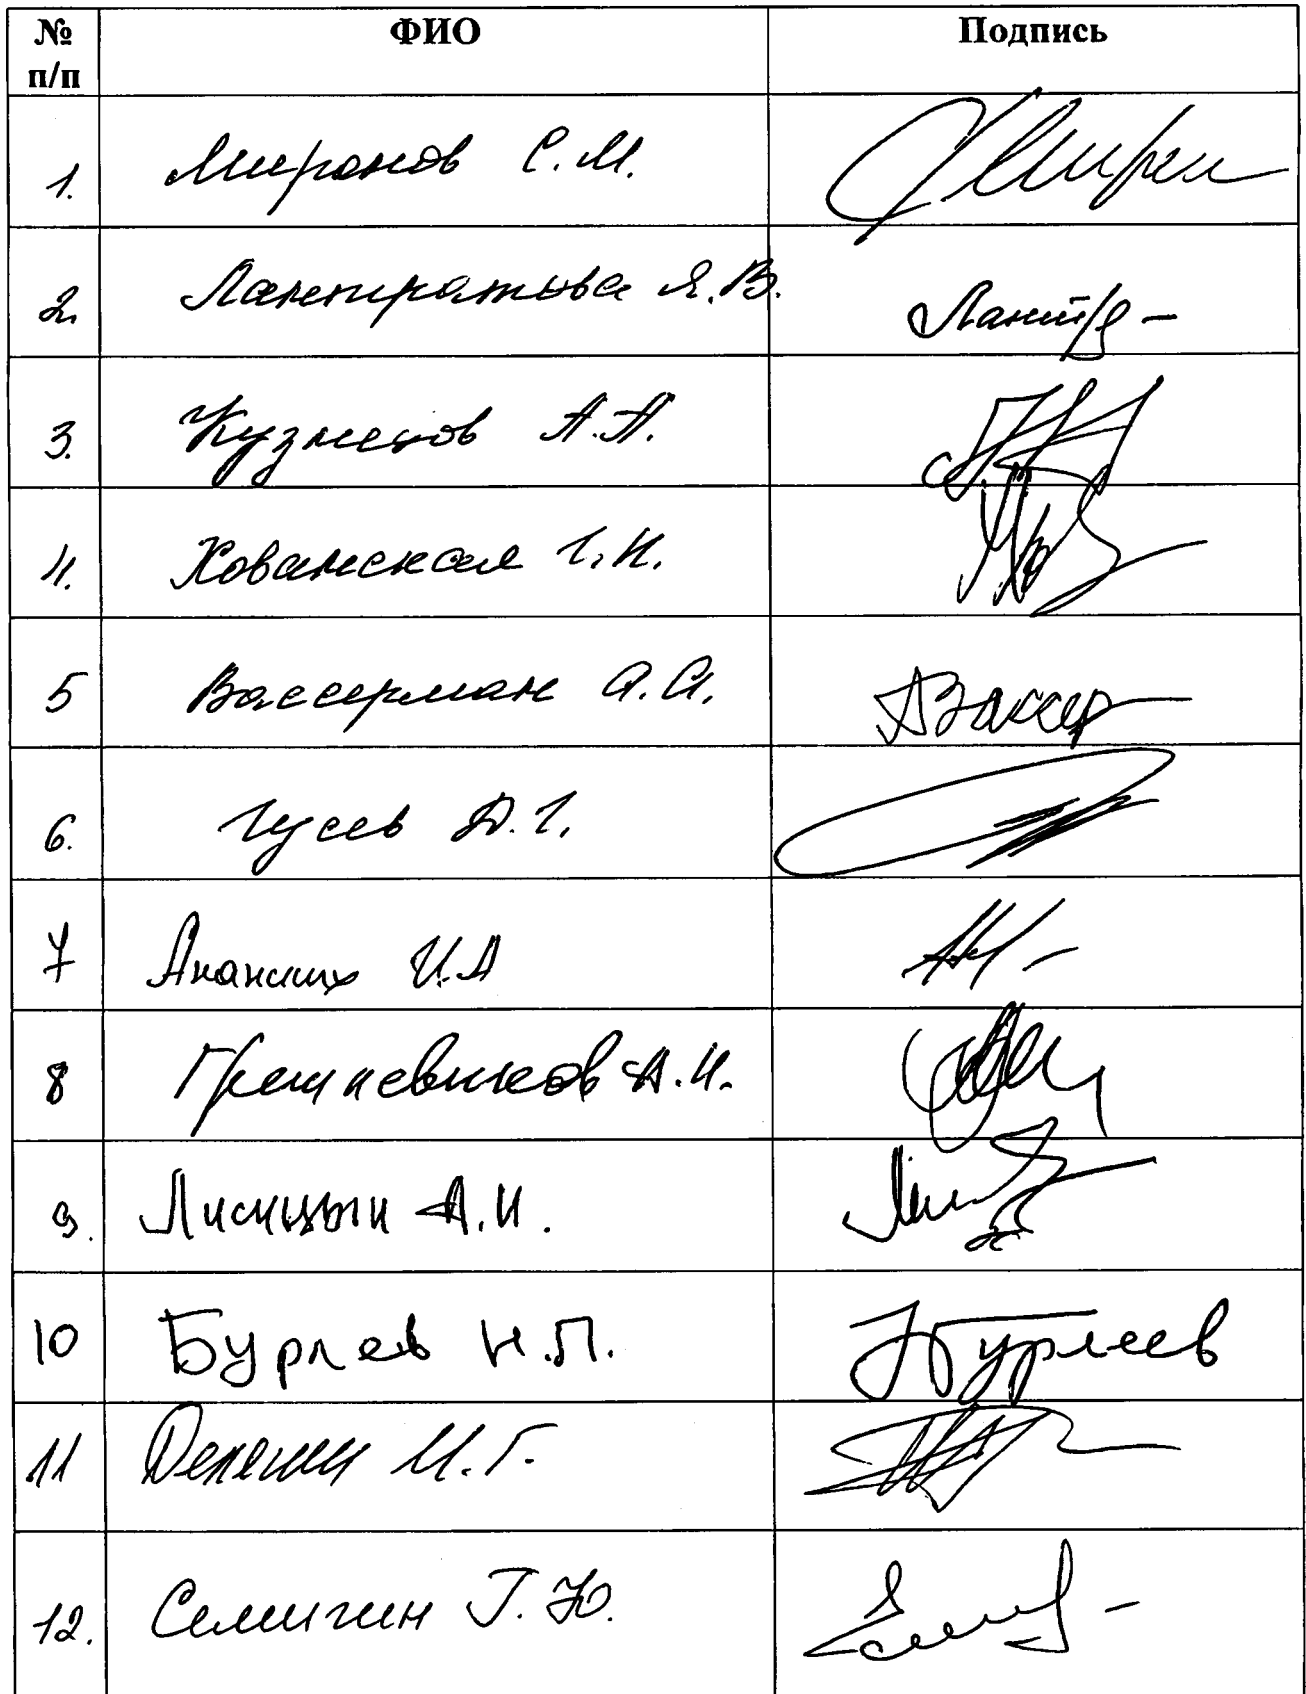 № п/п ФИО Подпись
1. Миронов С.М.
2. Лантратова Я.В.
3. Кузнецов А.А.
4. Хованская Г.Н.
5 Вассерман А.А. АВассер
6. Гусев Д.Г.
7 Ананских И.А
8 Грешневиков А.Н.
9. Лисицын А.И.
10 Бурляев Н.П. НБурляев
11 Делягин М.Г.
12. Семигин Г.Ю.